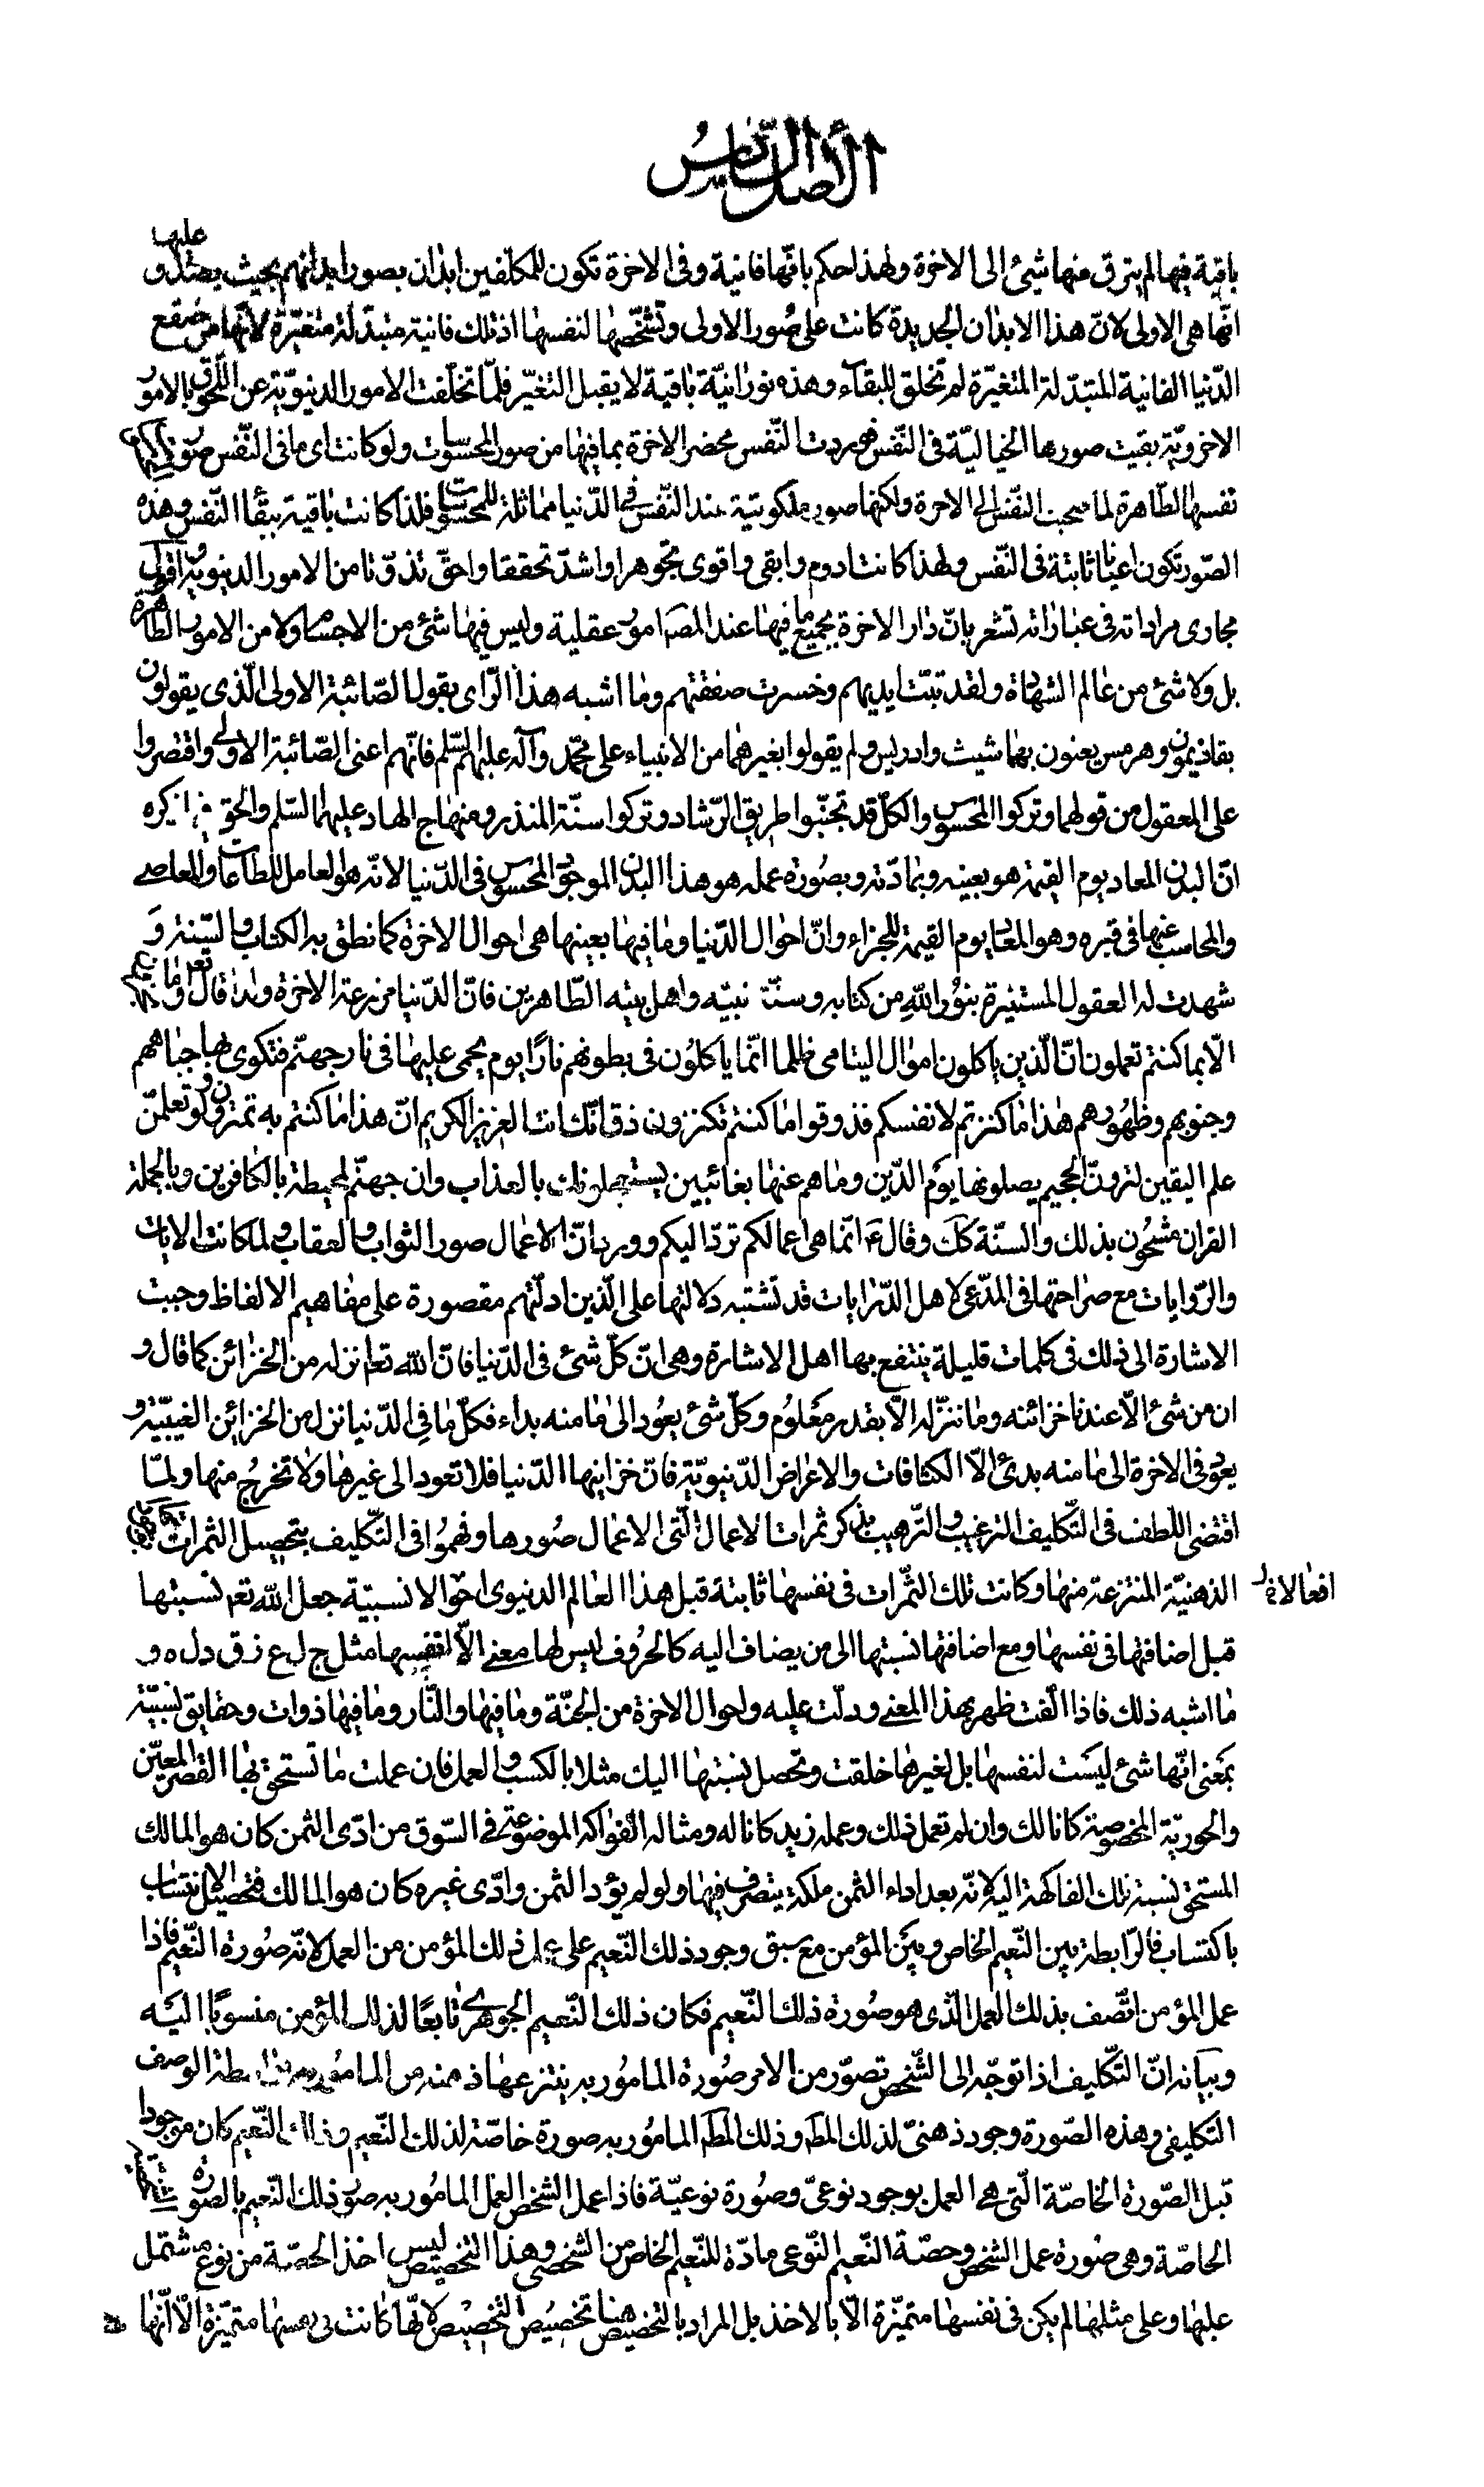 الأصل السادس
باقية فيها لم يترق منها شئ الى الاخرة ولهذا حكم بانّها فانية وفى الاخرة تكون للمكلّفين ابدان بصور ابدانهم بحيث يصدق عليها
انّها هى الاولى لانّ هذا الابدان الجديدة كانت على صُور الاولى وتشخّصها لنفسها اذ تلك فانية متبدّلة متغيّرة لانّها من صقع
الدّنيا الفانية المتبدّلة المتغيّرة لم تخلق للبقآء وهذه نورانيّة باقية لا يقبل التغيّر فلمّا تخلّفت الامور الدنيويّة عن اللّحوق بالامور
الاخرويّة بقيت صورها الخياليّة فى النّفس فوردت النّفس محضر الاخرة بما فيها من صور المحسوسات ولو كانت اى ما فى النّفس صور
نفسها الظّاهرة لما صحبت النّفس الى الاخرة ولكنها صور ملكوتية عند النّفس فى الدّنيا مماثلة للمحسوسات فلذا كانت باقية ببقآ النّفس وهذه
الصّور تكون اعيانا ثابتة فى النّفس ولهذا كانت ادوم وابقى واقوى تجوهرا واشدّ تحققا واحقّ تذوّتا من الامور الدنيويّة اقول
مجارى مراداته فى عباراته تشعر بانّ دار الاخرة بجميع ما فيها عند المصَ امور عقلية وليس فيها شئ من الاجسام ولا من الامور الظاهرة
بل ولا شئ من عالم الشهادة ولقد تبّت ايديهم وخسرت صفقتهم وما اشبه هذا الرّاى بقول الصّائبة الاولى الّذى يقولون
بقاذيمون وهرمس يعنون بهما شيث وادريس ولم يقولوا بغيرهما من الانبياء على محمّد وآله عليهم السّلم فانّهم اعنى الصّائبة الاولى واقتصروا
على المعقول من قولهما وتركوا المحسوس والكلّ قد تجنّبوا طريق الرّشاد وتركوا سنّة المنذر ومنهاج الهاد عليهما السّلم والحقّ
انّ البدن المعاد يوم القيمة هو بعينه وبمادّته وبصُورة عمله هو هذا البدن الموجود المحسوس فى الدّنيا لانّه هو العامل للطاعات والمعاصے
والمحاسب عنها فى قبره وهو المعاد يوم القيمة للجزاء وانّ احوال الدّنيا وما فيها بعينها هى احوال الاخرة كما نطق به الكتاب والسّنة وَ
شهدت له العقول المستنيرة بنوُر اللهِ من كتابه وسنّة نبيّه واهل بيته الطّاهرين فانّ الدّنيا مزرعة الاخرة ولذا قال تعَ وما تجزون
الّا بما كنتم تعملون انّ الّذين ياكلون اموال اليتامى ظلما انّما ياكلوُن فى بطونهم نارًا يوم يحمى عليها فى نار جهنّم فتكوى بها جباههم
وجنوبهم وظهوُرهم هٰذا ما كنزتم لانفسكم فذوقوا ما كنتم تكنزون ذق انّك انت العزيز الكريم انّ هذا ما كنتم به تمترون ولو تعلمنّ
علم اليقين لترونّ الجحيم يصلونها يوم الدّين وما هم عنها بغائبين يستعجلونك بالعذاب وان جهنّم لمحيطة بالكافرين وبالجملة
القران مشحُون بذلك والسنّة كك وقال عَ انّما هى اعمالكم تردّ اليكم وورد انّ الاعمال صور الثواب والعقاب ولما كانت الايات
والرّوايات مع صراحتها فى المدّعى لاهل الدّرايات قد تشتبه دلالتها على الّذين ادلّتهم مقصورة على مفاهيم الالفاظ وجبت
الاشارة الى ذلك فى كلمات قليلة ينتفع بها اهل الاشارة وهى انّ كلّ شئ فى الدّنيا فانّ الله تعَ انزله من الخزائن كما قال و
ان من شئ الّا عندنا خزائنه وما ننزّله الّا بقدر معَلوُم وكلّ شئ يعوُد الى ما منه بداء فكلّ ما فى الدّنيا نزل من الخزائن الغيبيّة و
يعوُد فى الاخرة الى ما منه بدئ الّا الكثافات والاعراض الدّنيويّة فانّ خزاينها الدّنيا فلا تعود الى غيرها ولا تخرُج منها ولمّا
اقتضى اللّطف فى التّكليف الترغيب والتّرهيب بذكر ثمرات الاعمال الّتى الاعمال صُورها وفهموُا فى التّكليف بتحصيل الثمرات
الذهنيّة المنتزعة منها وكانت تلك الثّمرات فى نفسها ثابتة قبل هذا العالم الدنيوى احوالا نسبيّة جعل الله تعَ نسبتها
قبل اضافتها فى نفسها ومع اضافتها نسبتها الى من يضاف اليه كالحُروف ليس لها معنے الّا لنفسها مثل ج ل ع ز ق د ل ه و
ما اشبه ذلك فاذا الّفت ظهر بهذا المعنے ودلّت عليه واحوال الاخرة من الجنّة وما فيها والنّار وما فيها ذوات وحقايق نسبيّة
بمَعنى انّها شئ ليسَت لنفسها بل لغيرها خلقت وتحصل نسبتها اليك مثلا بالكسب والعمل فان عملت ما تستحق بها القصر المعيّن
والحوريّة المخصوصة كانا لك وان لم تعمل ذلك وعمله زيد كانا له ومثاله الفواكه الموضوعة فے السّوق من ادّى الثمن كان هو المالك
المستحق لنسبة تلك الفاكهة اليه لانّه بعد اداء الثمن ملكه يتصرّف فيها ولو لم يؤد الثمن وادّى غيره كان هو المالك فتحصيل الانتساب
باكتساب فالرّابطة بين النّعيم الخاص وبيَن المؤمن مع سبق وجود ذلك النّعيم على عمل ذلك المؤمن من العمل لانّه صُورة النّعيم فاذا
عمل المؤمن اتّصف بذلك العمل الّذى هو صُورة ذلك النّعيم فكان ذلك النّعيم الجوهرى تابعًا لذلك المؤمن منسوبًا اليَه
وبيانه انّ التّكليف اذا توجّه الى الشّخص تصوّر من الامر صُورة المامُور به ينتزعها ذهنه من المامُور به الوصف
التكليفى وهذه الصّورة وجود ذهنىّ لذلك المطَ وذلك المطَ المامُور به صورة خاصّة لذلك النّعيم وذلك النّعيم كان موجودا
قبل الصّورة الخاصّة الّتى هى العمل بوجود نوعىّ وصُورة نوعيّة فاذا عمل الشخص العمل المامُور به صوّر ذلك النّعيم بالصّورة
الخاصّة وهى صُورة عمل الشخص وحصّة النّعيم النّوعى مادّة للنّعيم الخاص من الشّخصى وهذا التخصيص ليس اخذ الحصّة من نوع مشتمل
عليها وعلى مثلها لم يكن فى نفسها متميّزة الّا بالاخذ بل المراد بالتخصيص هنا تخصيُص التخصيص لانّها كانت فى نفسها متميّزة الّا انّها